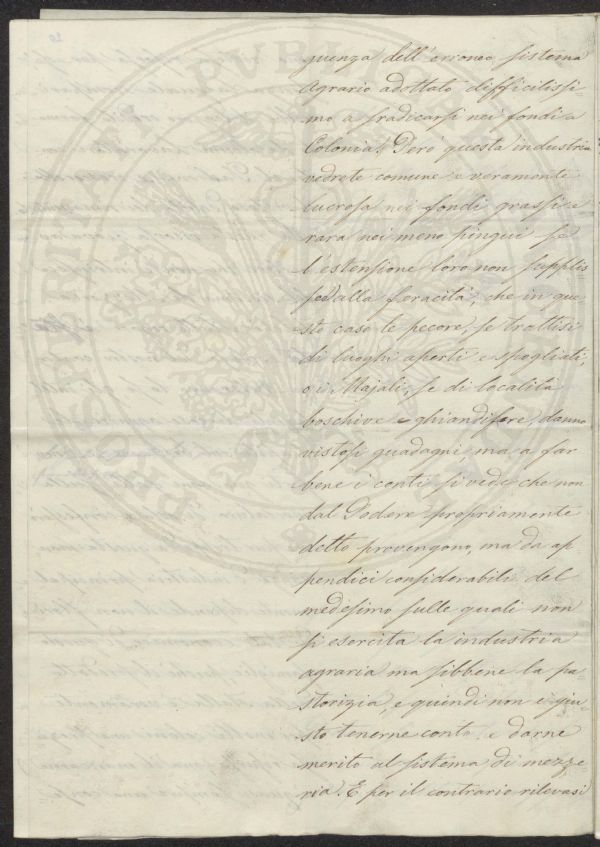 guenza dell'erroneo sistema
agrario adottato difficilissi-
mo a sradicarsi nei fondi a
Colonia. Però questa industria
vedrete comune e veramente
lucrosa nei fondi grassi e
rara nei meno pingui se
l'estensione loro non supplis-
se alla feracità, che in que-
sto caso le pecore, se trattisi
di luoghi aperti e spogliati,
o i Majali, se di località
boschive e ghiandifere, danno
vistosi guadagni ma a far
bene i conti si vede che non
dal Podere propriamente
detto provengono, ma da ap-
pendici considerabili del
medesimo sulle quali non
si esercita la industria
agraria ma sibbene la pa-
storizia, e quindi non è giu-
sto tenerne conto e darne
merito al sistema di mezze-
ria. E per il contrario rilevasi
PROSPERITATI PUBLICAE